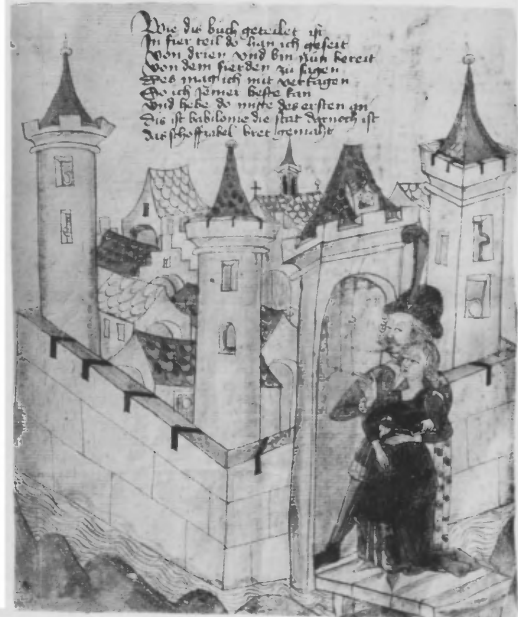 Wie dis buch geteilet ist
In fier teil do han ich geseit
Von drien vnd bin nun bereit
Von dem fierden zu sagen
Des mag ich nut vertagen
So ich jemer beste kan
Vnd hebe do mitte des ersten an
Dis ist babilonie die stat dar noch ist
das schoffzabel bret gemaht